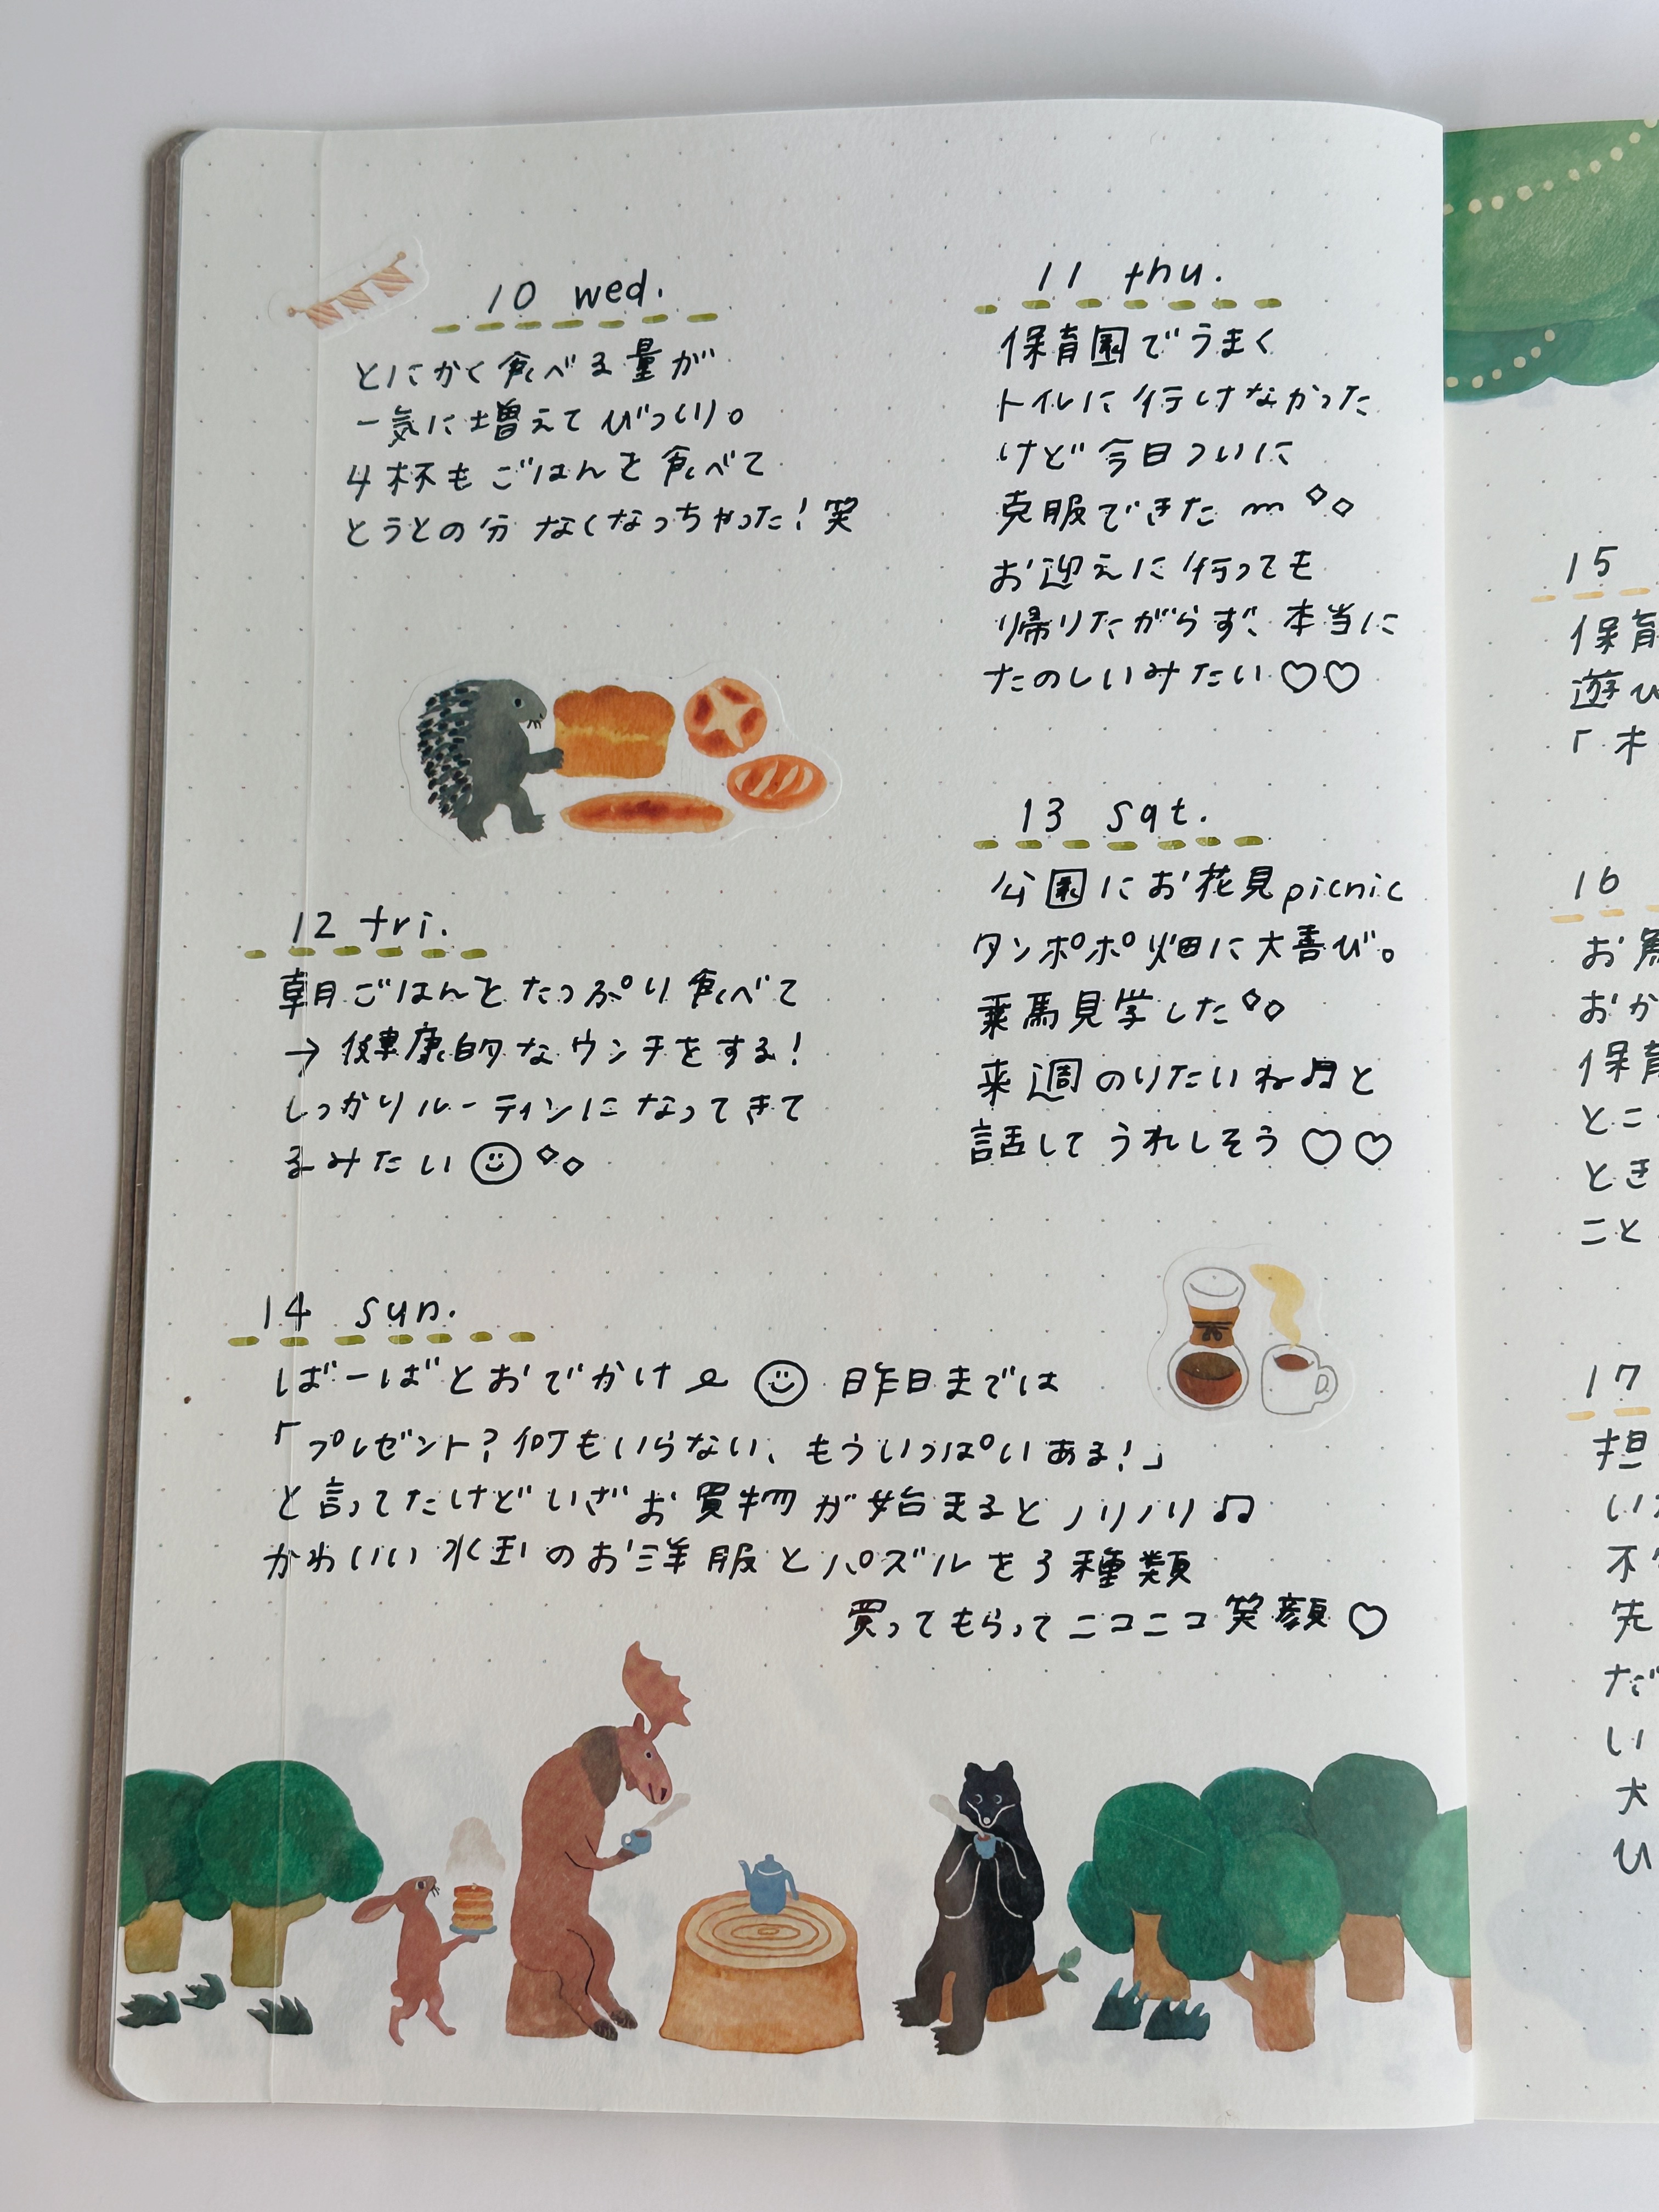 10 wed.
とにかく食べる量が
一気に増えてびっくり。
4杯もごはんを食べて
とうとの分なくなっちゃった!笑
11 thu.
保育園でうまく
トイレに行けなかった
けど今日ついに
克服できた
お迎えに行っても
帰りたがらず、本当に
たのしいみたい♡♡
12 fri.
朝ごはんをたっぷり食べて
→健康的なウンチをする!
しっかりルーティンになってきて
るみたい
13 sat.
公園にお花見picnic
タンポポ畑に大喜び。
乗馬見学した
来週のりたいね♫と
話してうれしそう♡♡
14 sun.
ばーばとおでかけ 昨日までは
「プレゼント?何もいらない、もういっぱいある!」
と言ってたけどいざお買物が始まるとノリノリ♫
かわいい水玉のお洋服とパズルを3種類
買ってもらってニコニコ笑顔♡
15
保育
遊び
「木
16
お魚
おか
保育
とこ
とき
こと
17
担
いた
不
先
だ
い
大
ひ